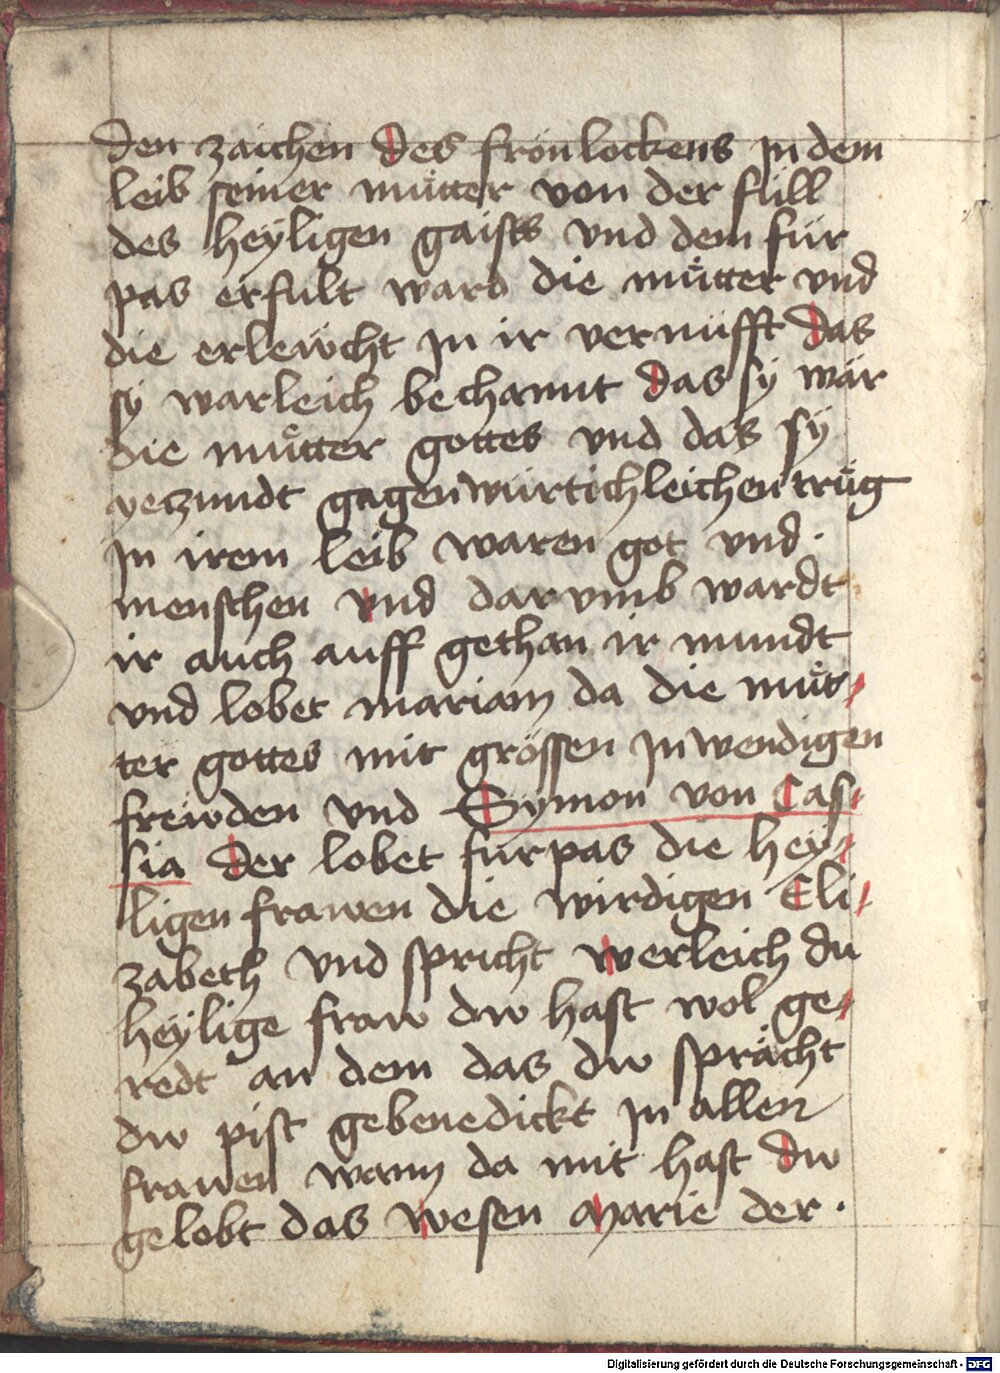 den zaichen des frönlockens in dem
leib seiner muͤtter von der füll
des heyligen gaists vnd dem für
pas erfult ward die muͤtter vnd
die erlewcht in ir vernufft das
sy warleich bechannt das sy wär
die muͤtter gottes vnd das sy
yeczundt gagenwürtichleichen truͤg
in irem leib waren got vnd ·
menschen vnd dar vmb wardt
ir auch auff gethan ir mundt
vnd lobet mariam da die muͤt-
ter gottes mit grössen inwendigen
frewden vnd Symon von Cas-
sia der lobet fürpas die hey-
ligen frawen die wirdigen Eli-
zabeth vnd spricht werleich du
heylige fraw dw hast wol ge-
redt an dem das dw sprächt
dw pist gebenedickt in allen
frawen wann da mit hast dw
gelobt das wesen Marie der ·
Digitalisierung gefördert durch die Deutsche Forschungsgemeinschaft - DFG